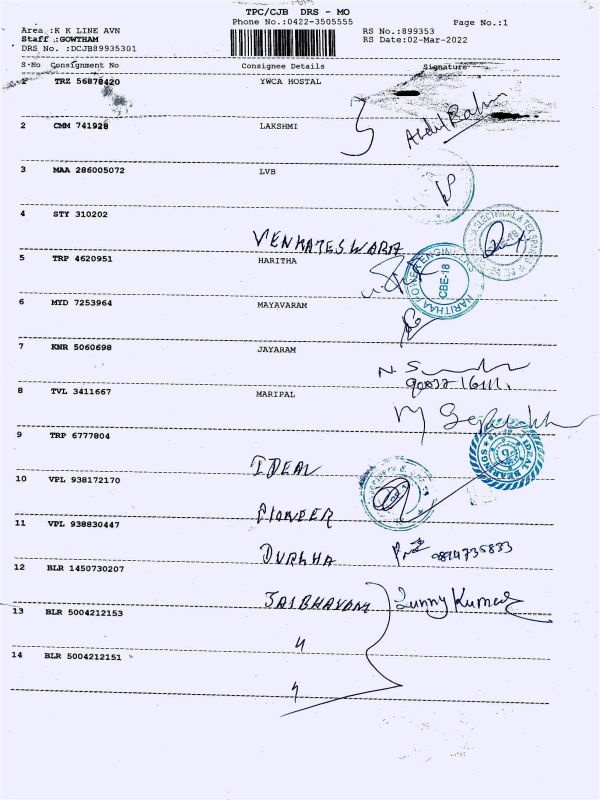 TPC/CJB DRS - MO
Phone No.:0422-3505555
Page No.:1
Area :K K LINE AVN
RS No.:899353
Staff :GOWTHAM
RS Date:02-Mar-2022
DRS No. :DCJB89935301
S.No Consignment No Consignee Details Signature
1 TRZ 56878420 YWCA HOSTAL
2 CMM 741928 LAKSHMI
Abdul Rahm
3 MAA 286005072 LVB
4 STY 310202
VENKATESWARA
5 TRP 4620951 HARITHA
HARITHAA POWER ENGINEERS
CBE-18
6 MYD 7253964 MAYAVARAM
7 KNR 5060698 JAYARAM
8 TVL 3411667 MARIPAL
9 TRP 6777804
IDEAL
IDEAL BEARINGS
10 VPL 938172170
PIONEER
11 VPL 938830447
DURGHA
12 BLR 1450730207
JAIBHAVANI
Sunny Kumar
13 BLR 5004212153
"
14 BLR 5004212151
"